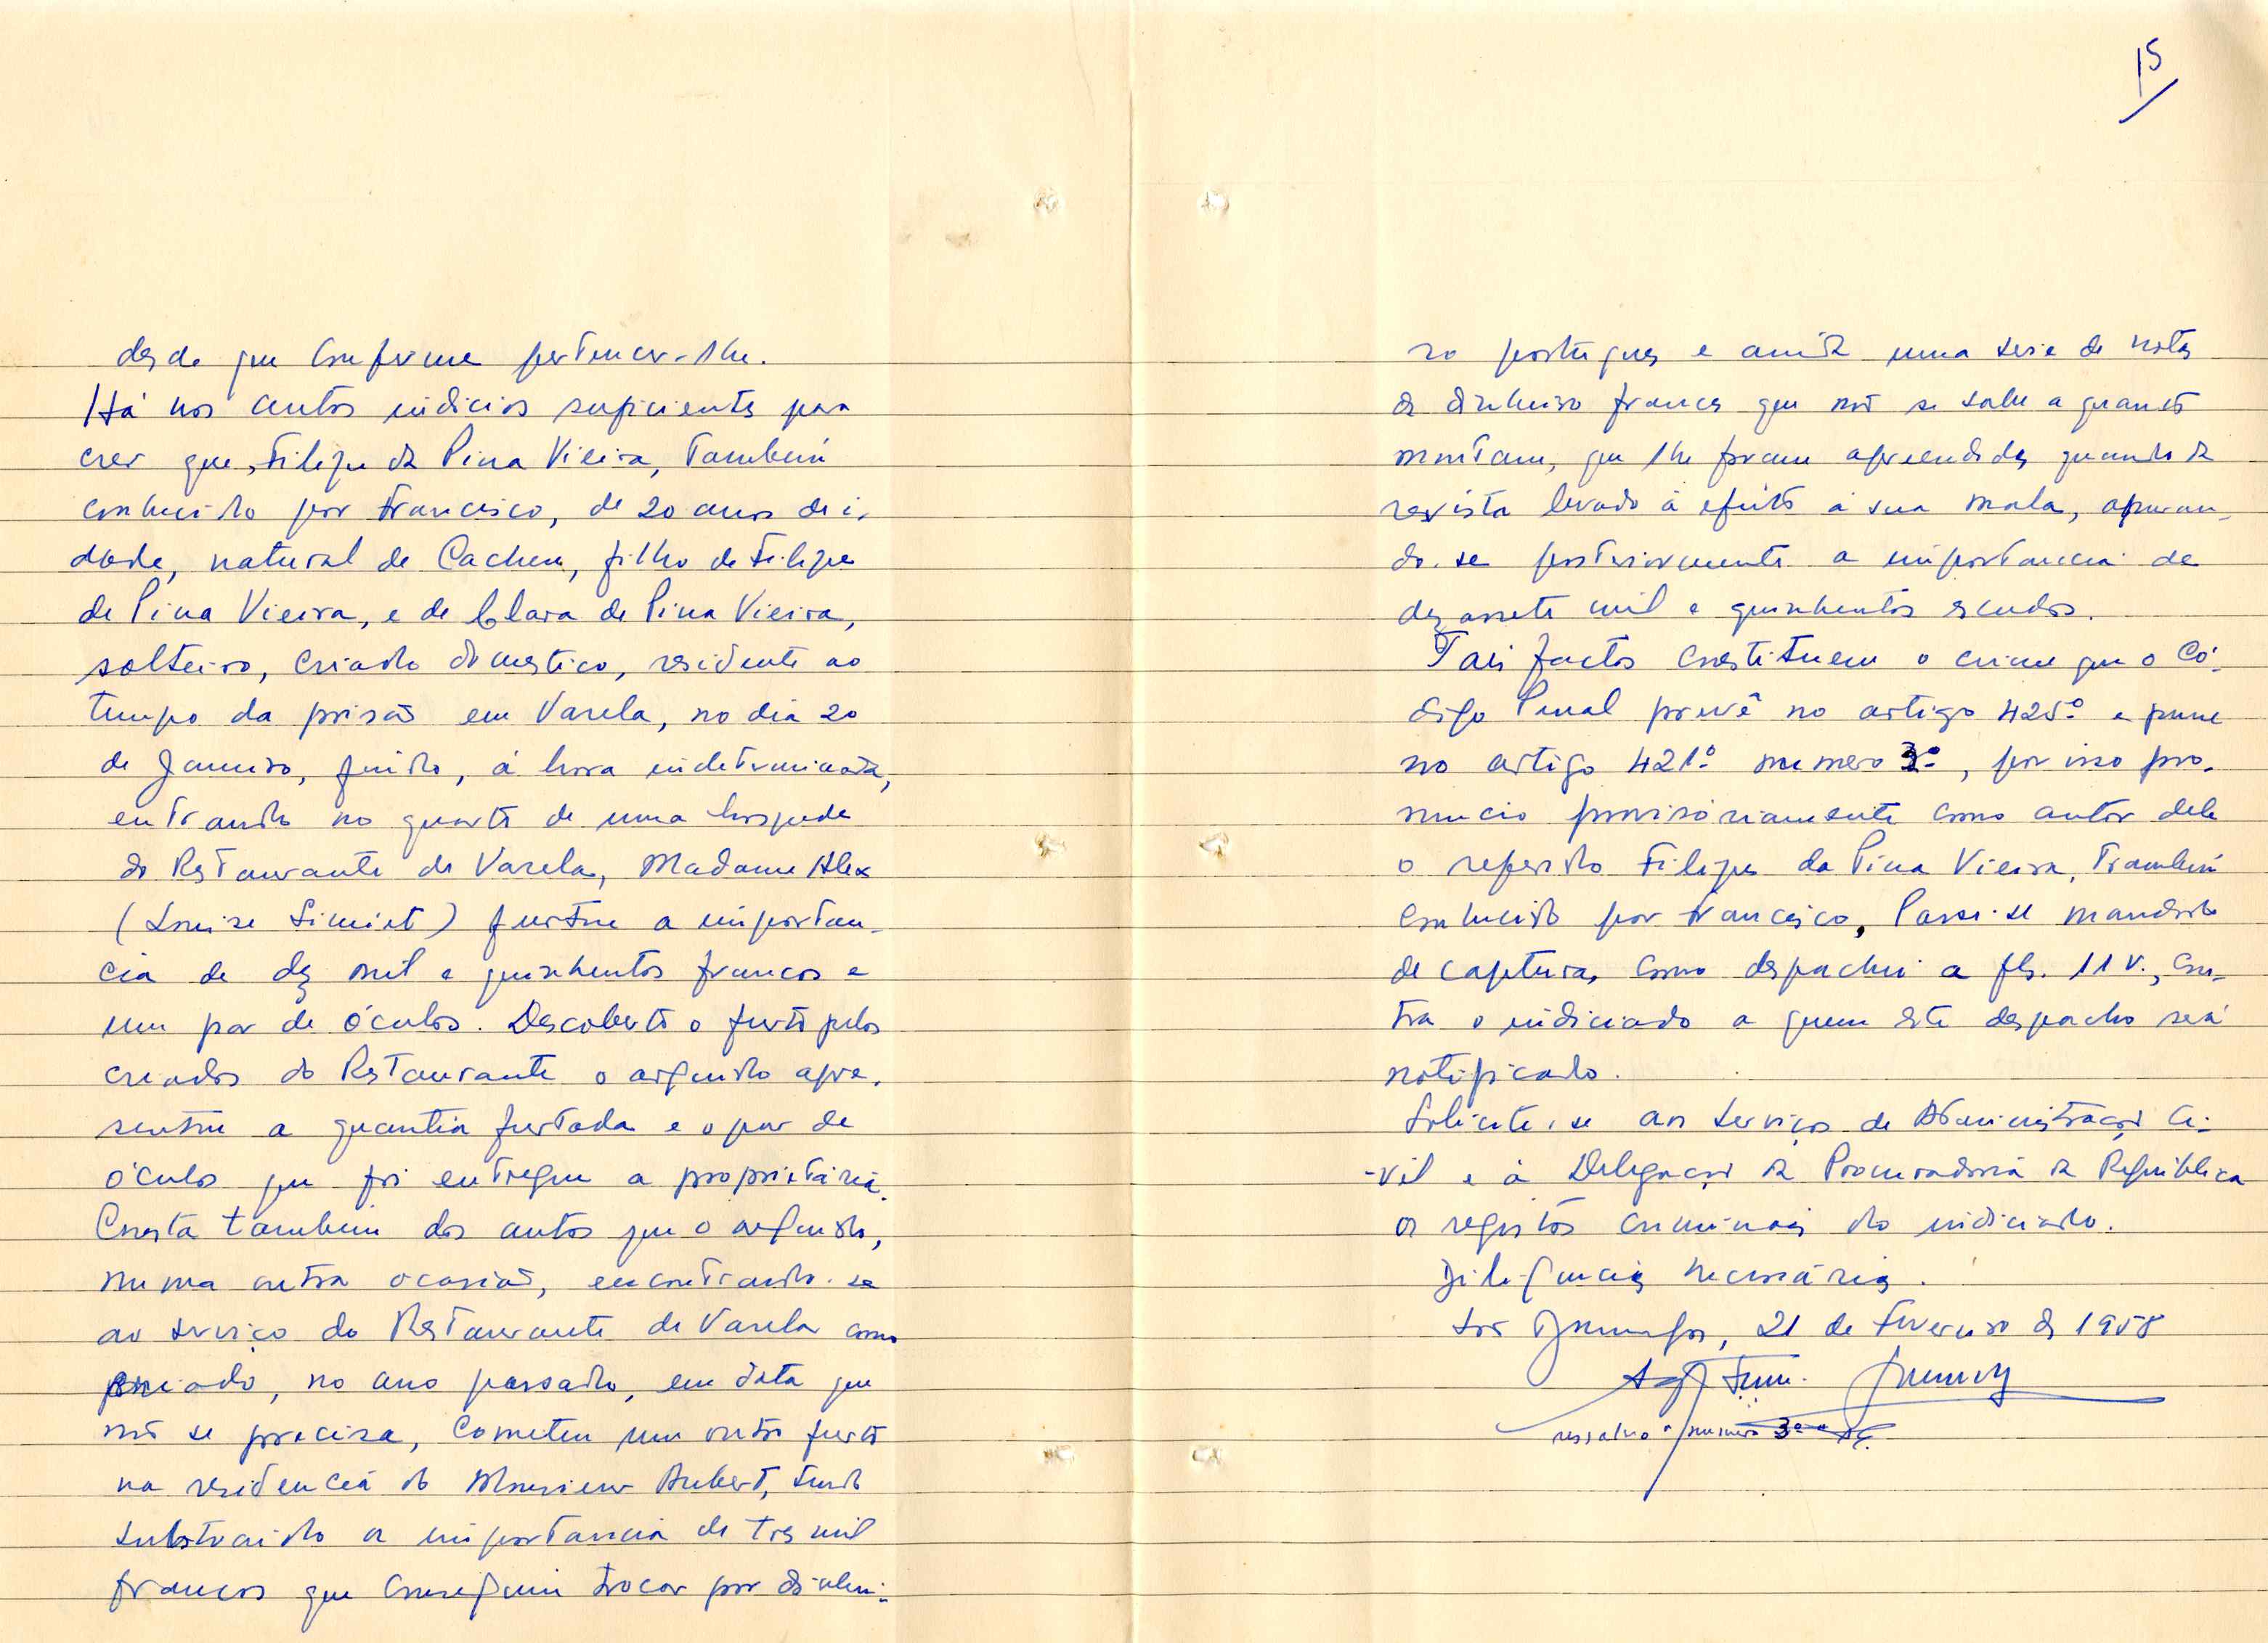 desde que confirme pertencer-lhe.
Há nos autos indicios suficientes para
crer que, Filipe da Pina Vieira, também
conhecido por Francisco, de 20 anos de i-
dade, natural de Cacheu, filho de Filipe
de Pina Vieira, e de Clara de Pina Vieira,
solteiro, criado domestico, residente ao
tempo da prisão em Varela, no dia 20
de Janeiro, findo, á hora indeterminada,
entrando no quarto de uma hospede
do Restaurante de Varela, Madame Alex
(Louise Simiet) furtou a importan-
cia de dez mil e quinhentos francos e
um par de óculos. Descoberto o furto pelos
criados do Restaurante o arguido apre-
sentou a quantia furtada e o par de
óculos que foi entregue a proprietária.
Consta também dos autos que o arguido,
numa outra ocasião, encontrando-se
ao serviço do Restaurante de Varela como
criado, no ano passado, em data que
não se precisa, cometeu um outro furto
na residencia do Monsieur Aubert, tendo
substraido a importancia de tres mil
francos que conseguiu trocar por dinhei-
15
ro portugues e ainda uma serie de notas
de dinheiro frances que não se sabe a quanto
montam, que lhe foram apreendidas quando da
revista levado á efeito á sua mala, apuran-
do-se posteriormente a importancia de
dezassete mil e quinhentos escudos.
Tais factos constituem o crime que o Có-
digo Penal prevê no artigo 425º e pune
no artigo 421º numero 3º, por isso pro-
nuncio provisóriamente como autor dele
o referido Filipe da Pina Vieira, também
conhecido por Francisco, Passe-se mandado
de captura, como despachei a fls. 11 v., con-
tra o indiciado a quem este despacho será
notificado.
Solicite-se aos Serviços de Administração Ci-
-vil e á Delegação da Procuradoria da República
os registos criminais do indiciado.
Diligencias necessárias.
São Domingos, 21 de Fevereiro de 1958
ressalvo o numero 3º